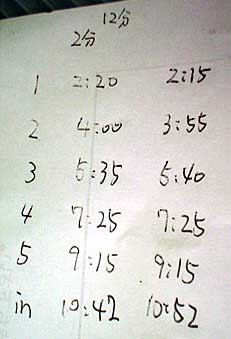 12分
2分
1 2:20 2:15
2 4:00 3:55
3 5:35 5:40
4 7:25 7:25
5 9:15 9:15
in 10:42 10:52